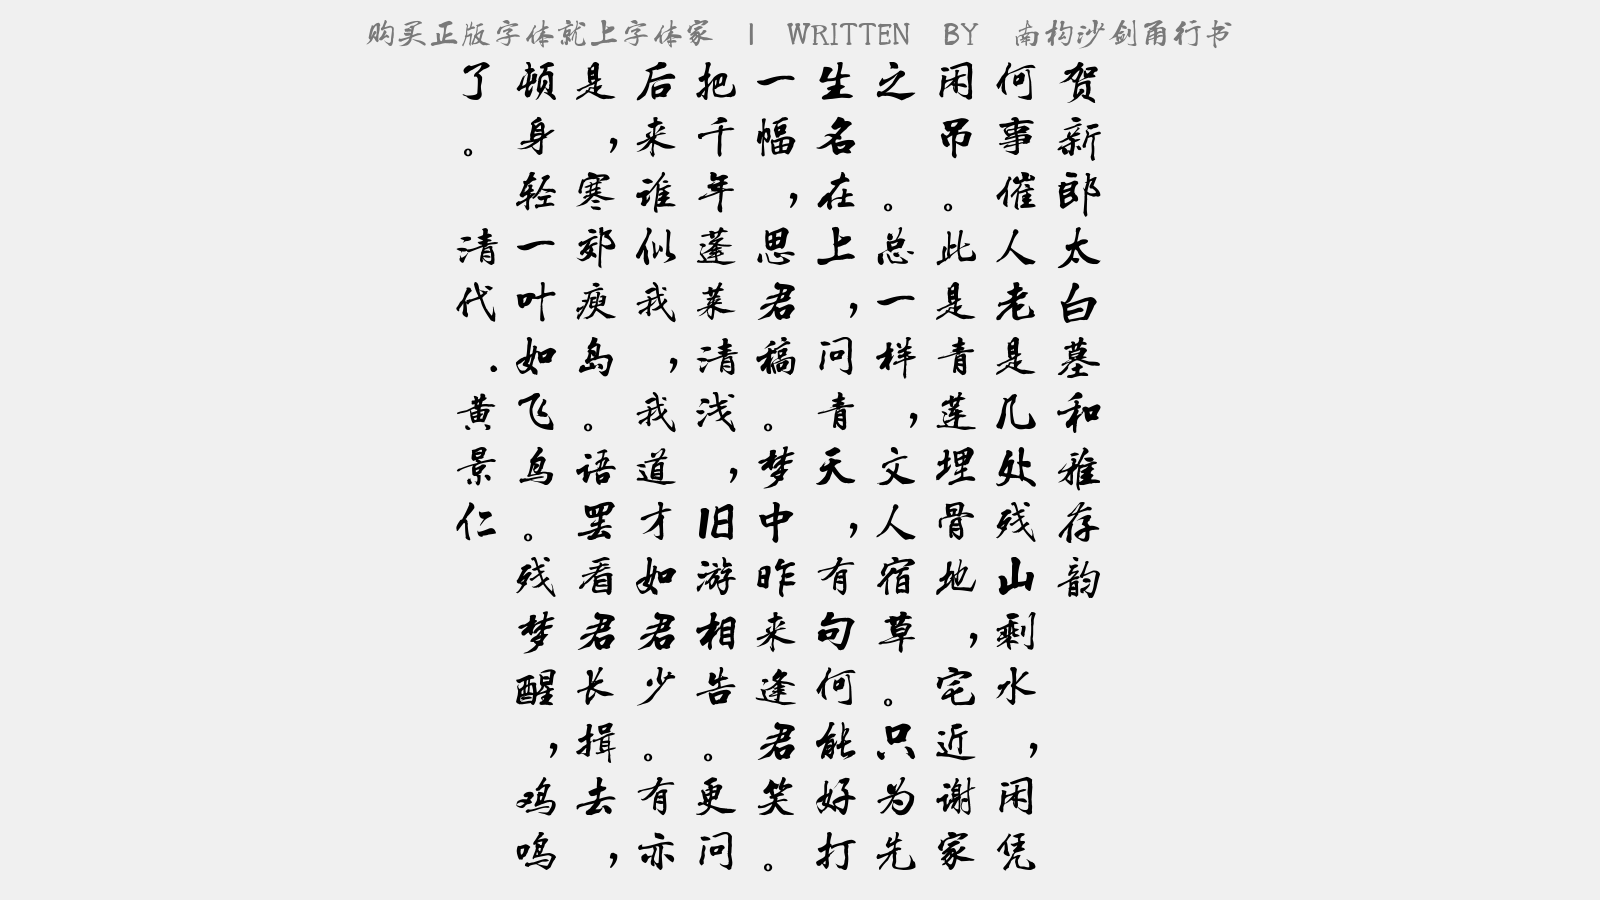 购买正版字体就上字体家 | WRITTEN BY 南构沙剑甬行书
贺新郎太白墓和雅存韵
何事催人老是几处残山剩水，闲凭
闲吊。此是青莲埋骨地，宅近谢家
之。总一样，文人宿草。只为先
生名在上，问青天，有句何能好打
一幅，思君稿。梦中昨来逢君笑。
把千年蓬莱清浅，旧游相告。更问
后来谁似我，我道才如君少。有亦
是，寒郊瘐岛。语罢看君长揖去，
顿身轻一叶如飞鸟。残梦醒，鸡鸣
了。清代.黄景仁